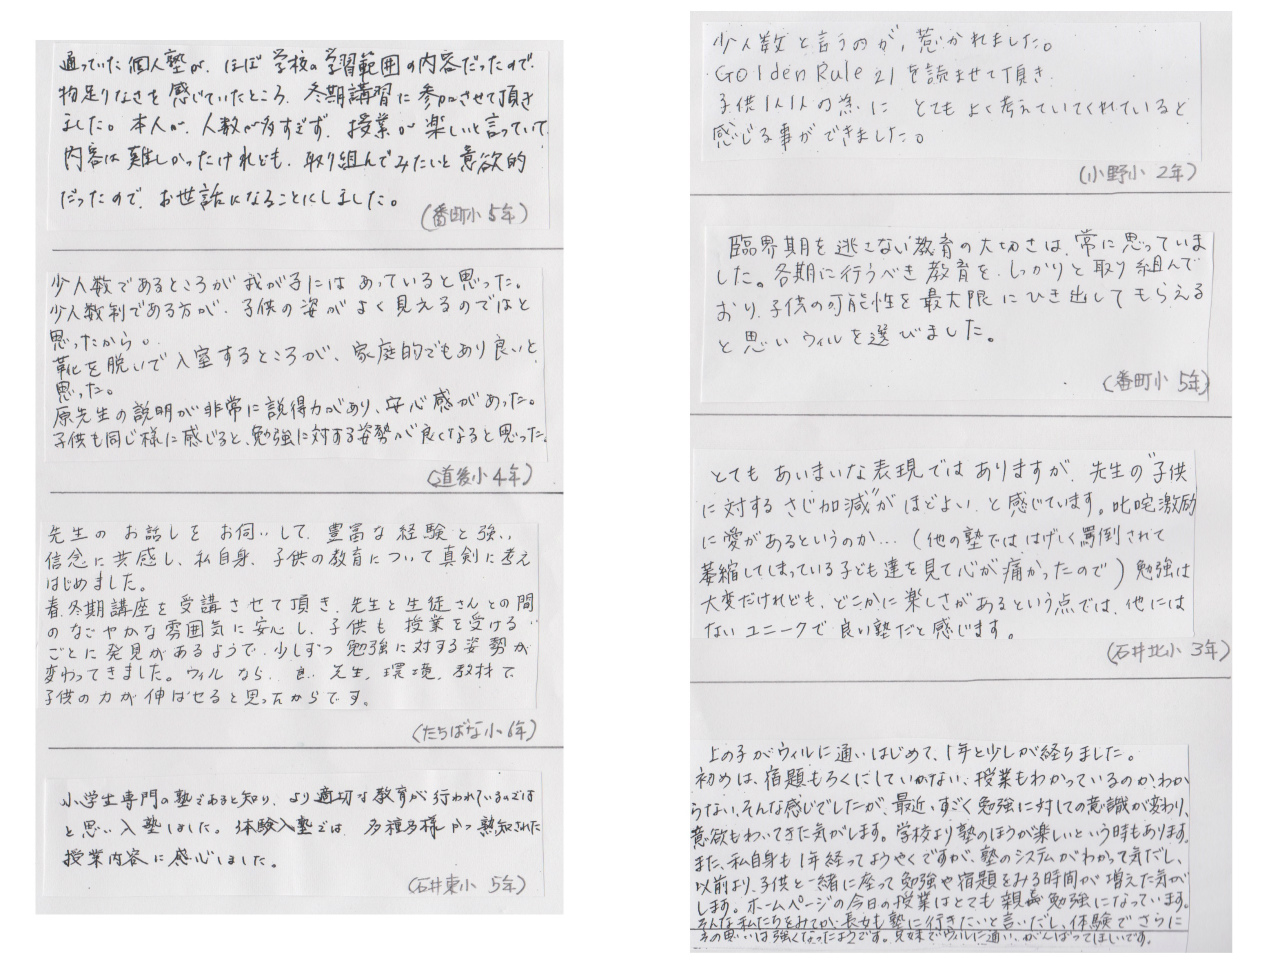 通っていた個人塾が、ほぼ学校の学習範囲の内容だったので、
物足りなさを感じていたところ、冬期講習に参加させて頂き
ました。本人が、人数が多すぎず、授業が楽しいと言っていて、
内容は難しかったけれども、取り組んでみたいと意欲的
だったので、お世話になることにしました。
(番町小 5年)
少人数であるところが我が子にはあっていると思った。
少人数制である方が、子供の姿がよく見えるのではと
思ったから。
靴を脱いで入室するところが、家庭的でもあり良いと
思った。
原先生の説明が非常に説得力があり、安心感があった。
子供も同じ様に感じると、勉強に対する姿勢が良くなると思った。
(道後小 4年)
先生のお話しをお伺いして、豊富な経験と強い
信念に共感し、私自身、子供の教育について真剣に考え
はじめました。
春、冬期講座を受講させて頂き、先生と生徒さんとの間
のなごやかな雰囲気に安心し、子供も授業を受ける
ごとに発見があるようで、少しずつ勉強に対する姿勢が
変わってきました。ウィルなら、良い先生、環境、教材で
子供の力が伸ばせると思ったからです。
(たちばな小 6年)
小学生専門の塾であると知り、より適切な教育が行われているのでは
と思い入塾しました。体験入塾では、多種多様かつ熟知された
授業内容に感心しました。
(石井東小 5年)
少人数と言うのが、惹かれました。
Golden Rule 21を読ませて頂き、
子供1人1人の為に とてもよく考えていてくれていると
感じる事ができました。
(小野小 2年)
臨界期を逃さない教育の大切さは、常に思っていま
した。各期に行うべき教育を、しっかりと取り組んで
おり、子供の可能性を最大限にひき出してもらえる
と思いウィルを選びました。
(番町小 5年)
とてもあいまいな表現ではありますが、先生の“子供
に対するさじ加減”がほどよい、と感じています。叱咤激励
に愛があるというのか…(他の塾では、はげしく罵倒されて
萎縮してしまっている子ども達を見て心が痛かったので)勉強は
大変だけれども、どこかに楽しさがあるという点では、他には
ないユニークで良い塾だと感じます。
(石井北小 3年)
上の子がウィルに通いはじめて、1年と少しが経ちました。
初めは、宿題もろくにしていかない、授業もわかっているのかわか
らない、そんな感じでしたが、最近、すごく勉強に対しての意識が変わり、
意欲もわいてきた気がします。学校より塾のほうが楽しいという時もあります。
また、私自身も1年経ってようやくですが、塾のシステムがわかって気だし、
以前より、子供と一緒に座って勉強や宿題をみる時間が増えた気が
します。ホームページの今日の授業はとても親も勉強になっています。
そんな私たちをみてか、長女も塾に行きたいと言いだし、体験でさらに
その思いは強くなったようです。兄妹でウィルに通い、がんばってほしいです。